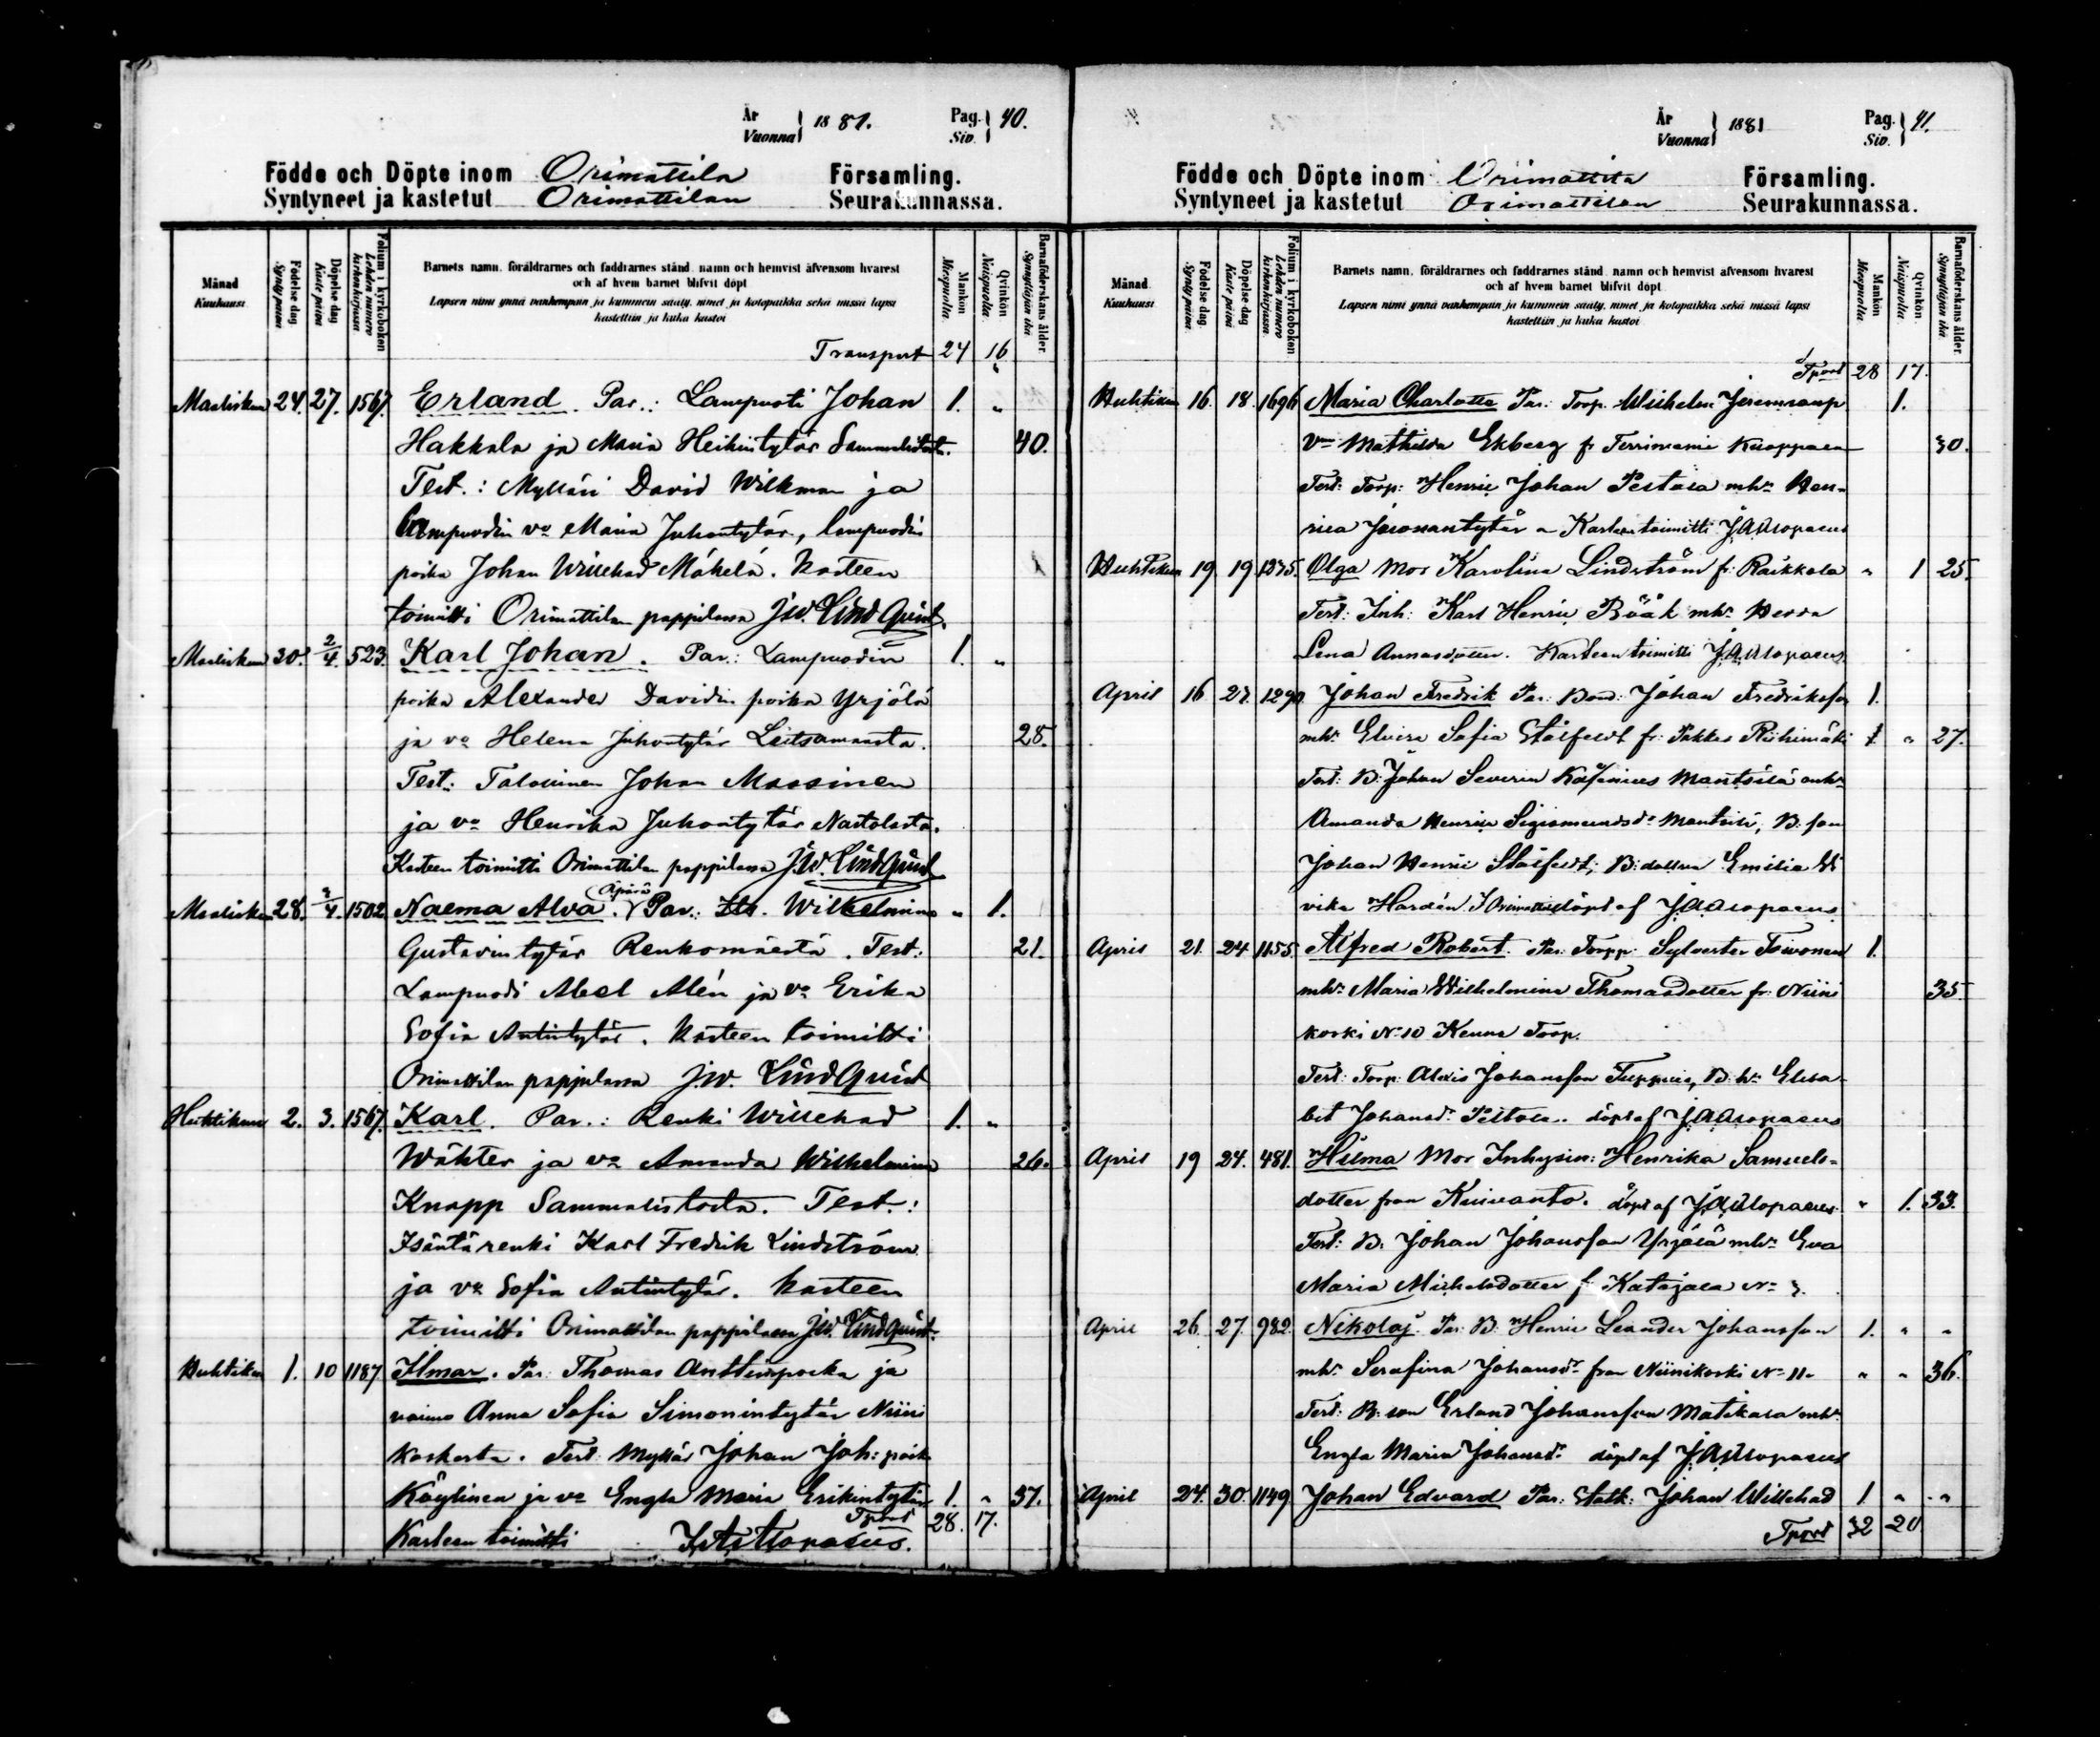 År
Vuonna } 1881.
Pag.
Siv. } 40.
Födde och Döpte inom Orimattila Församling.
Syntyneet ja kastetut Orimattilan Seurakunnassa.
Månad
Kuukausi.
Födelse dag.
Synty päivä.
Döpelse dag
Kaste päivä
Folium i kyrkoboken
Lehden numero kirkonkirjassa
Barnets namn, föräldrarnes och faddrarnes stånd, namn och hemvist äfvensom hvarest
och af hvem barnet blifvit döpt
Lapsen nimi ynnä vanhempain ja kummein sääty, nimet ja kotopaikka sekä missä lapsi
kastettiin ja kuka kastoi
Mankön
Miespuolia.
Qvinkön
Naispuolia.
Barnaföderskans ålder.
Synnyttäjän ikä
Transport 24 16
Maaliskuu 24. 27. 1567. Erland. Par.: Lampuoti Johan 1. "
Hakkala ja Maria Heikintytär Sammalistosta. 40.
Test.: Mylläri David Wilkman ja
Lampuodin vo Maria Juhontytär, lampuodin
poika Johan Willehad Mäkelä. Kasteen
toimitti Orimattilan pappilassa J.W. Lindquist.
Maaliskuu 30. 2/4. 523. Karl Johan. Par.: Lampuodin 1. "
poika Alexander Davidin poika Yrjölä
ja vo Helena Juhontytär Leitsamaasta. 28.
Test.: Talollinen Johan Massinen
ja vo Henrika Juhontytär Nastolasta.
Kasteen toimitti Orimattilan pappilassa J.W. Lindquist
Maaliskuu 28. 2/4. 1502. Naema Alva. (Äpärä) Par.: Itt. Wilhelmina " 1.
Gustavintytär Renkomäestä. Test.: 21.
Lampuodi Abel Alén ja vo Erika
Sofia Antintytär. Kasteen toimitti
Orimattilan pappilassa J.W. Lindquist
Huhtikuu 2. 3. 1567. Karl. Par.: Renki Willehad 1. "
Wäkter ja vo Amanda Wilhelmina 26.
Knapp Sammalistosta. Test.:
Isäntärenki Karl Fredrik Lindström
ja vo Sofia Antintytär. Kasteen
toimitti Orimattilan pappilassa J.W. Lindquist.
Huhtikuu 1. 10 1187 Ilmar. Par: Thomas Anttinpoika ja
vaimo Anna Sofia Simonintytär Niini
koskesta. Test: Mylläri Johan Joh: poik
Köylinen ja vo Engla Maria Erikintytär 1. " 37.
Tport 28. 17.
Kasteen toimitti J.A. Alopaeus.
År
Vuonna } 1881
Pag.
Siv. } 41.
Födde och Döpte inom Orimattila Församling.
Syntyneet ja kastetut Orimattilan Seurakunnassa.
Månad
Kuukausi.
Födelse dag.
Synty päivä.
Döpelse dag
Kaste päivä
Folium i kyrkoboken
Lehden numero kirkonkirjassa
Barnets namn, föräldrarnes och faddrarnes stånd, namn och hemvist äfvensom hvarest
och af hvem barnet blifvit döpt
Lapsen nimi ynnä vanhempain ja kummein sääty, nimet ja kotopaikka sekä missä lapsi
kastettiin ja kuka kastoi
Mankön
Miespuolia
Qvinkön.
Naispuolia.
Barnaföderskans ålder.
Synnyttäjän ikä
Tport 28 17.
Huhtikuu 16. 18 1696 Maria Charlotta Par: Torp. Wilhelm 1.
Mathilda Ekberg fr 30.
Test: Torp: Henric Johan Pertala mhu Hen-
rica Kasteen toimitti J.A. Alopaeus
Huhtikuu 19. 19 1235. Olga Mor Karolina Lindström fr: Räikkölä " 1 25.
Test: Inh: Karl Henric Bååk mhu Hedda
Lena Annasdotter. Kasteen toimitti J.A. Alopaeus
April 16 27. 1290 Johan Fredrik Par: Bond: Johan Fredriksson 1.
mhu Elvira Sofia Stålfelt fr: Pakkas Riihimäki 1. " 27.
Test: B: Johan Severin Mäntsälä mhu
Amanda Henric Sigismundsdr Mäntsälä, B: son
Johan Henric Stålfelt, B: dottern Emilia Lo
vika Hardén. I Orimattila döpt af J.A. Alopaeus
April 21. 24 1155. Alfred Robert. Par: Torpp: Sylvester Toivonen 1.
mhu Maria Wilhelmina Thomasdotter fr: Niini 35.
koski No 10 Torp.
Test: Torp: Alexis Johansson B: hu Elisa-
bet Johansdr döpt af J.A. Alopaeus
April 19 24. 481. Hilma Mor Inhysin: Henrika Samuels-
dotter från Kuivanto. döpt af J.A. Alopaeus " 1. 33.
Test: B. Johan Johansson Yrjälä mhu Eva
Maria Michelsdotter fr Katajala No 3.
April 26. 27. 982. Nikolaj. Par: B. Henric Leander Johansson 1. " "
mhu Serafina Johansdr från Niinikoski No 11. " " 36.
Test: B: son Erland Johansson Matikala mhu
Engla Maria Johansdr döpt af J.A. Alopaeus
April 24. 30. 1149 Johan Edvard Par: Statk: Johan Willehad 1 " "
Tport 32 20